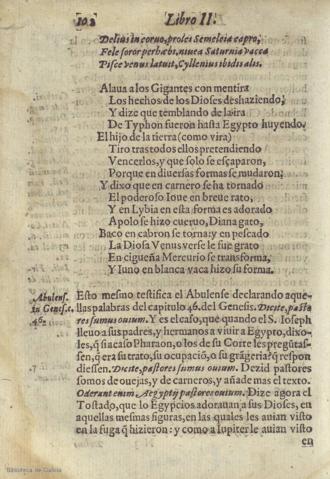 102 Libro II.
Delius in coruo, proles Semeleia capro,
Fele soror perhæbi, niuea Saturnia vacca
Pisce venus latuit, Cyllenius ibidis alis.
Alaua a los Gigantes con mentira
Los hechos de los Dioses deshaziendo,
Y dize que temblando de la ira
De Typhon fueron hasta Egypto huyendo.
El hijo de la tierra (como vira)
Tiro tras todos ellos pretendiendo
Vencerlos, y que solo se escaparon,
Porque en diuersas formas se mudaron;
Y dixo que en carnero se ha tornado
El poderoso Ioue en breue rato,
Y en Lybia en esta forma es adorado
Apolo se hizo cueruo, Diana gato,
Baco en cabron se torna: y en pescado
La Diosa Venus verse le fue grato
En cigueña Mercurio se transforma,
Y Iuno en blanca vaca hizo su forma.
Abulens.
in Genes. c.
46.
Esto mesmo testifica el Abulense declarando aque-
llas palabras del capitulo 46. del Genesis. Dicite, pasto
res sumus ouium. Y es el caso, que quando el S. Ioseph
lleuo a sus padres, y hermanos a viuir a Egypto, dixo-
les, q̃ si acaso Pharaon, o los de su Corte les pregũtas-
sen, q̃ era su trato, su ocupaciõ, o su grãgeria? q̃ respon
diessen. Dicite, pastores sumus ouium. Dezid pastores
somos de ouejas, y de carneros, y añade mas el texto.
Oderant enim, Aegyptij pastores ouium. Dize agora el
Tostado, que lo Egypcios adorauan a sus Dioses, en
aquellas mesmas figuras, en las quales les auian visto
en la fuga q̃ hizieron: y como a Iupiter le auian visto
en
Biblioteca de Galicia